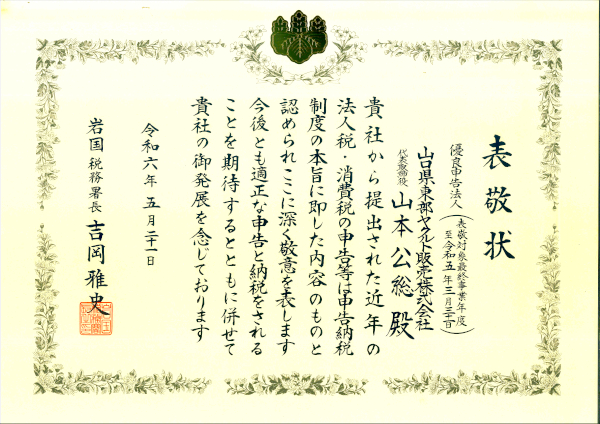 表敬状
優良申告法人(表敬対象最終事業年度 至令和五年三月三十一日)
山口県東部ヤクルト販売株式会社
代表取締役 山本公総殿
貴社から提出された近年の
法人税・消費税の申告等は申告納税
制度の本旨に即した内容のものと
認められここに深く敬意を表します
今後とも適正な申告と納税をされる
ことを期待するとともに併せて
貴社の御発展を念じております
令和六年五月二十一日
岩国税務署長 吉岡雅史